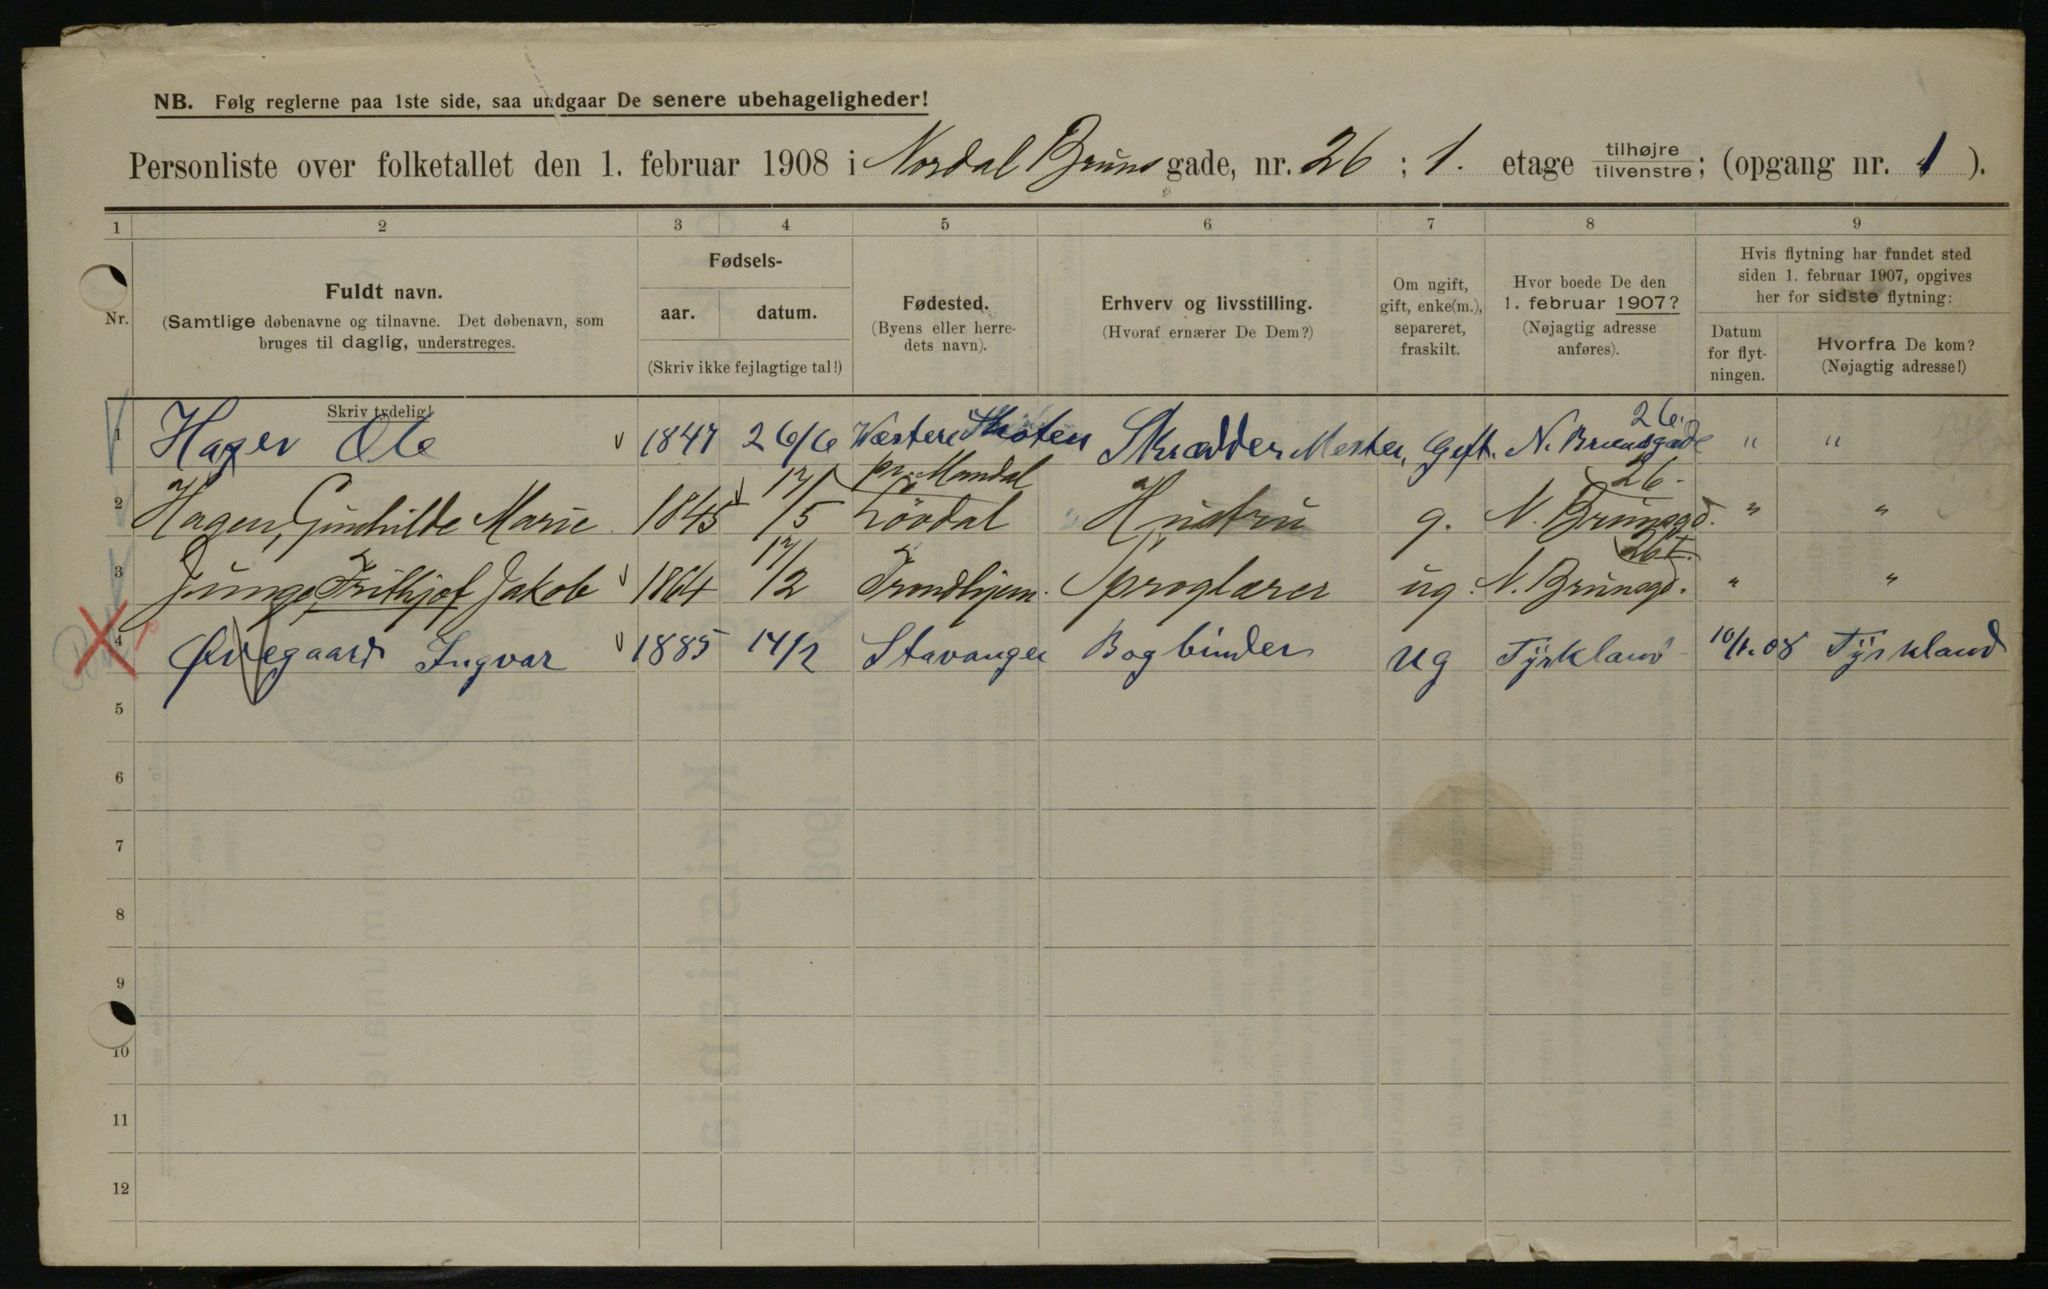 NB. Følg reglerne paa 1ste side, saa undgaar De senere ubehageligheder!
Personliste over folketallet den 1. februar 1908 i Nordal Bruns gade, nr. 26 ; 1. etage tilhøjre/tilvenstre; (opgang nr. 1 ).
1 2 3 4 5 6 7 8 9
Nr.
Fuldt navn.
(Samtlige døbenavne og tilnavne. Det døbenavn, som
bruges til daglig, understreges.
Skriv tydelig!
Fødsels-
aar. datum.
(Skriv ikke fejlagtige tal!)
Fødested.
(Byens eller herre-
dets navn).
Erhverv og livsstilling.
(Hvoraf ernærer De Dem?)
Om ugift,
gift, enke(m.),
separeret,
fraskilt.
Hvor boede De den
1. februar 1907?
(Nøjagtig adresse
anføres).
Hvis flytning har fundet sted
siden 1. februar 1907, opgives
her for sidste flytning:
Datum
for flyt-
ningen.
Hvorfra De kom?
(Nøjagtig adresse!)
1 Hagen Ole 1847 26/6 Skrædder Mester, Gift. N. Brunsgade 26. " "
2 Hagen, Gunhilde Marie 1845 17/5 pr. Mandal Hustru g. N. Brunsgd. 26. " "
3 Junge, Frithjof Jakob 1864 17/2 Trondhjem. Sproglærer ug. N. Brunsgd. 26 " "
4 Øvegaard Ingvar 1885 14/2 Stavanger Bogbinder ug Tÿskland 10/1.08 Tÿskland
5
6
7
8
9
10
11
12